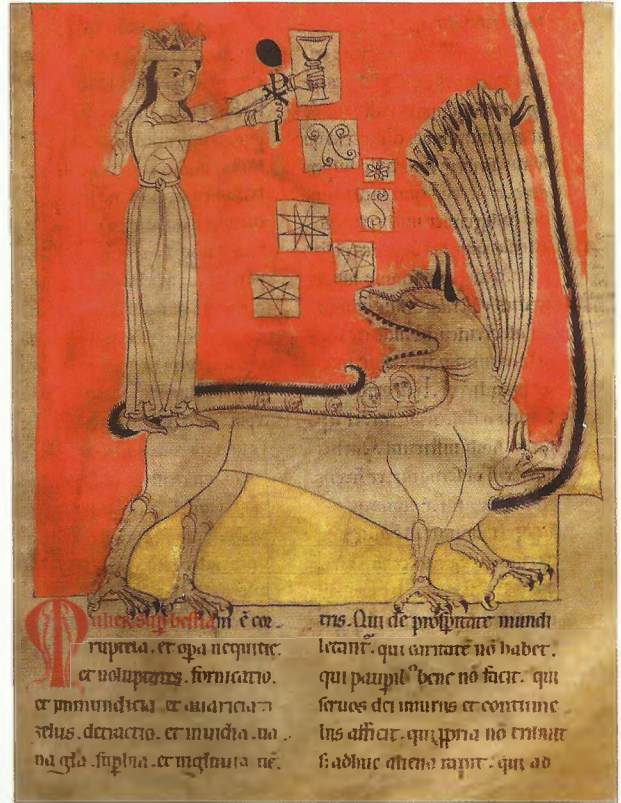 Mulier sup bestiam ē cor-
ruptela. et opa nequitie.
et uoluptates. fornicatio.
et inmundicia et auaricia
zelus. detractio. et inuidia. ua
na gła. supbia. et ingluuia
tris. Qui de prospitate mundi
letant̄. qui caritatē nō habet.
qui paupib bene nō facit. qui
seruos dei iniuriis et contume
liis afficit. qui ppria nō tribuit
s: adhuc aliena rapit. qui ad